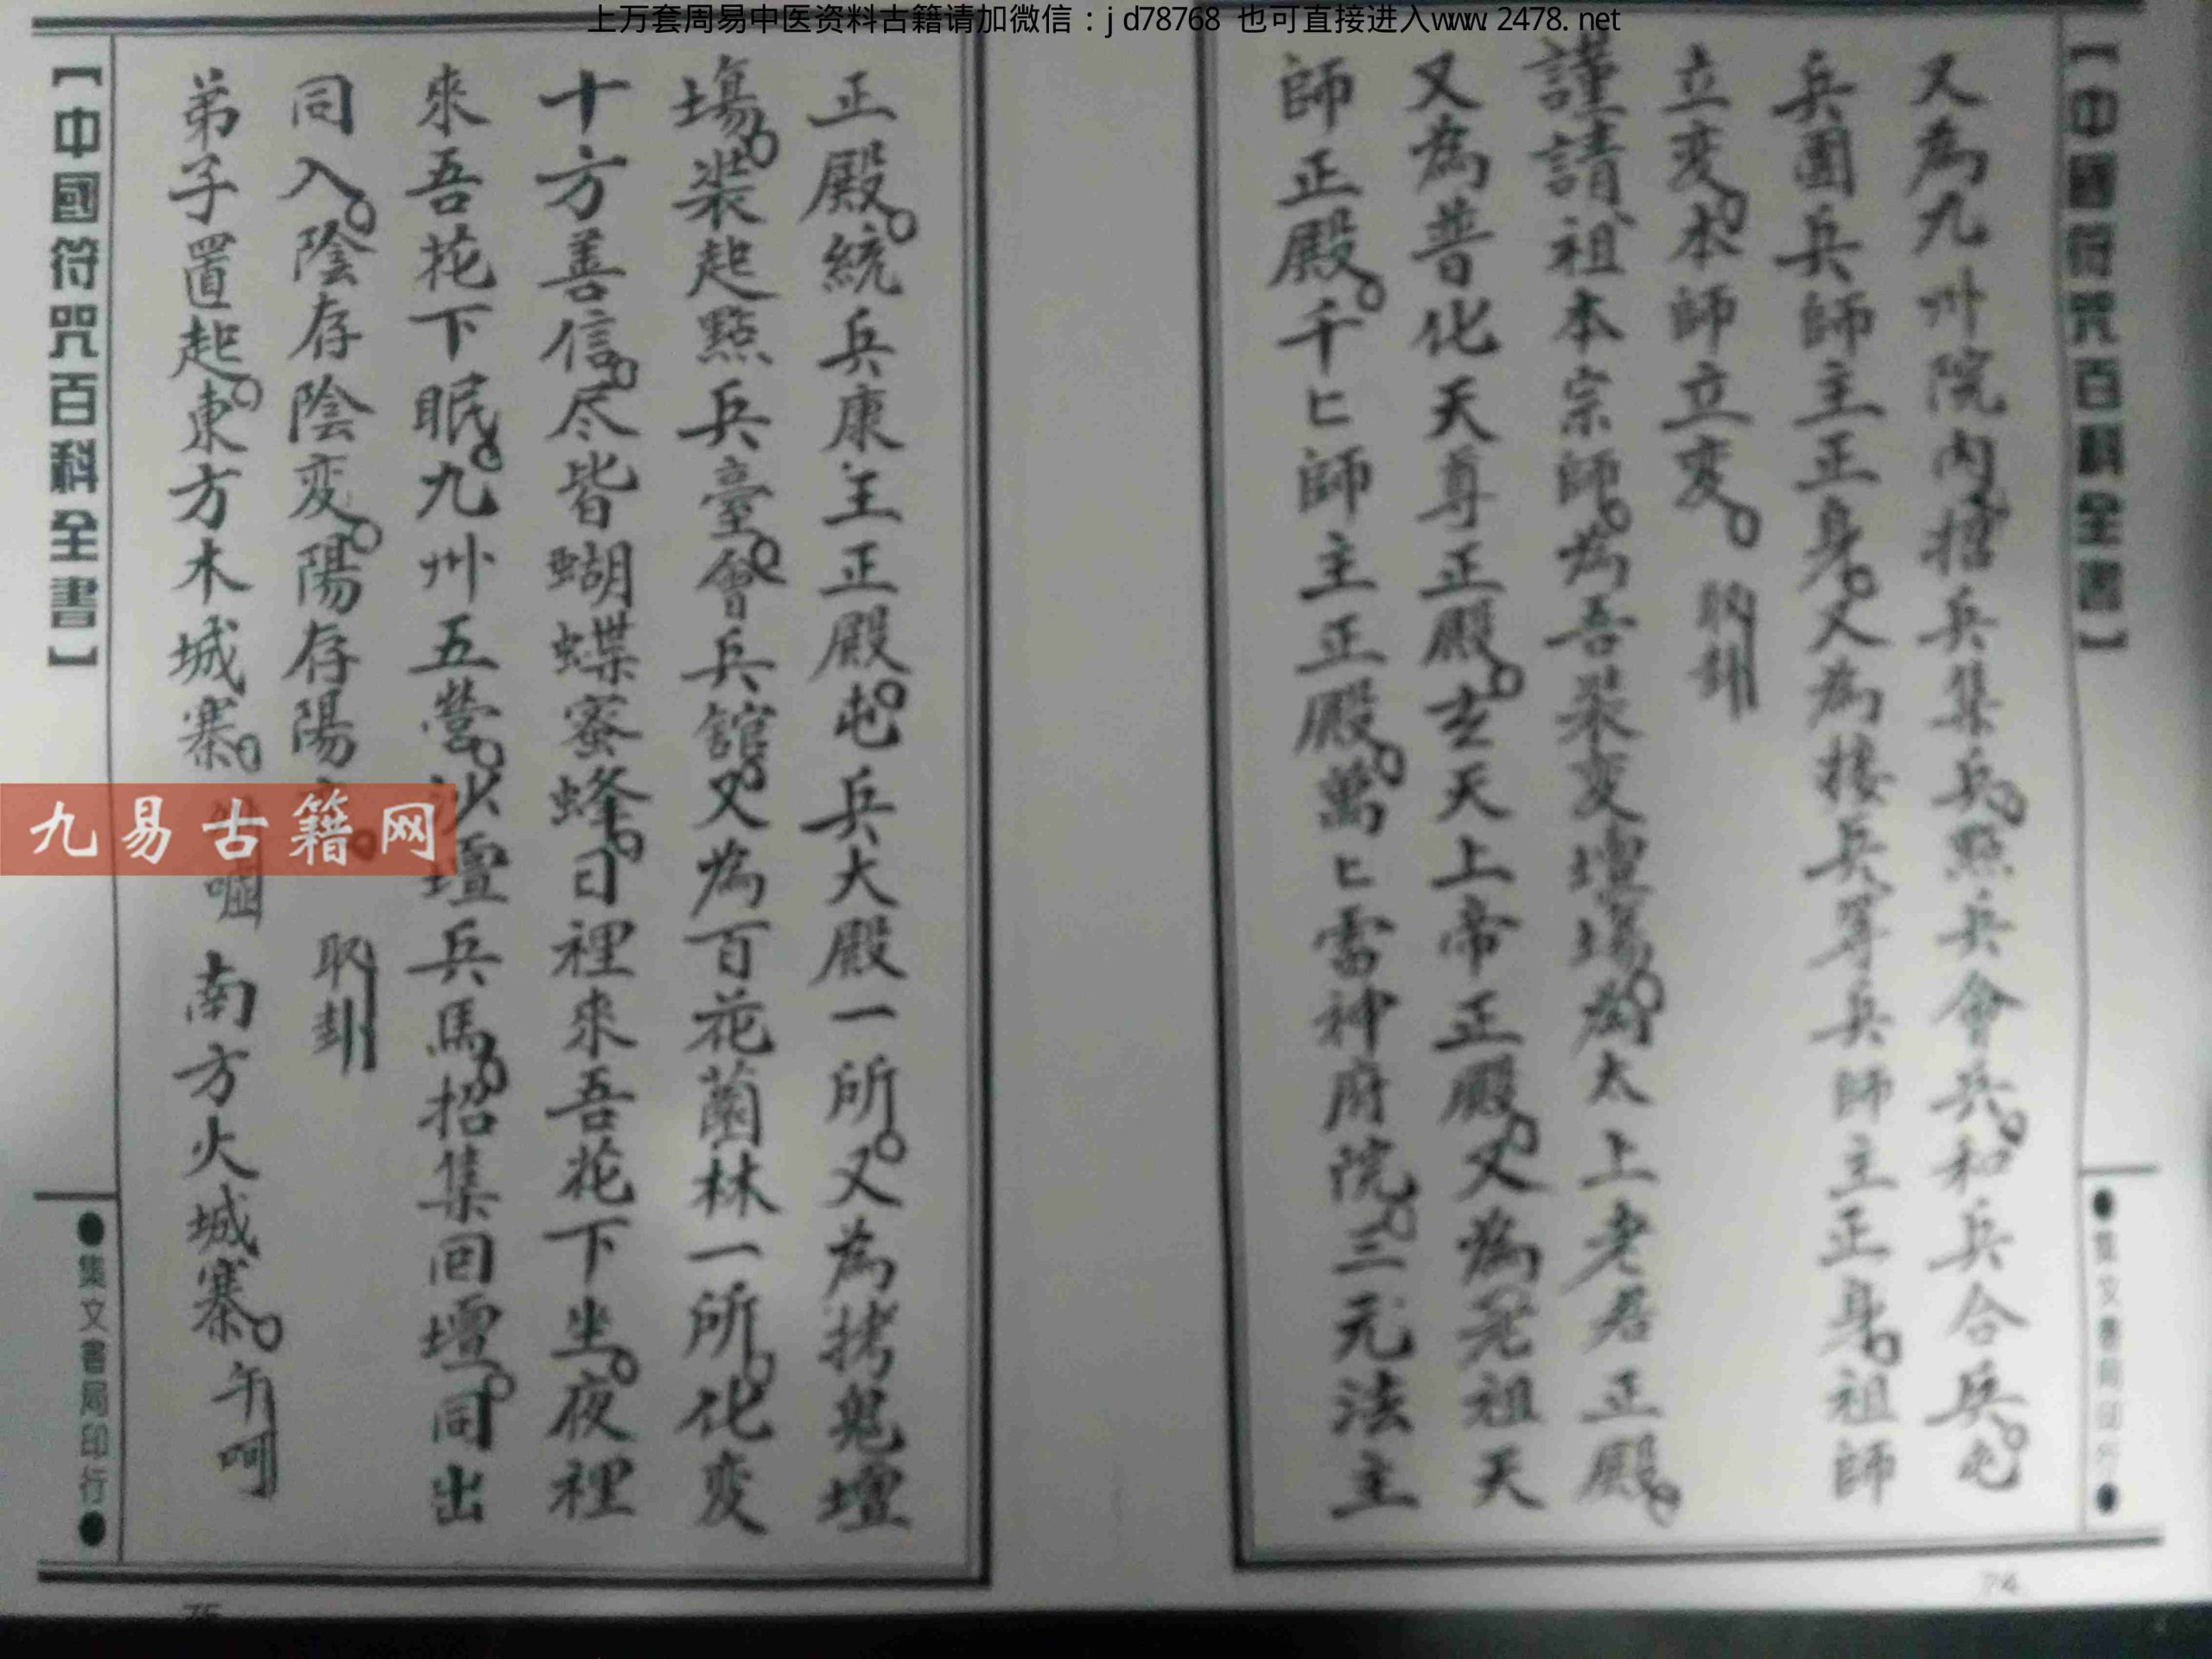 上万套周易中医资料古籍请加微信：jd78768 也可直接进入www.2478.net
【中國符咒百科全書】
●集文書局印行●
又為九州院內招兵集兵。點兵會兵。和兵合兵。屯
兵團兵師主正身。又為接兵等兵師主正身。祖師
立変。本師立変。
謹請祖本宗師。為吾裝変壇場。為太上老君正殿。
又為普化天尊正殿。玄天上帝正殿。又為祖天
師正殿。千匕師主正殿。萬匕雷神府院。三元法主
74
正殿。統兵康主正殿。屯兵大殿一所。又為拷鬼壇
場。裝起點兵臺。會兵舘。又為百花薗林一所。化変
十方善信。尽皆蝴蝶蜜蜂。日裡來吾花下坐。夜裡
來吾花下眠。九州五營。沙壇兵馬。招集回壇。同出
同入。陰存陰変。陽存陽
弟子置起。東方木城寨。南方火城寨。午呵
【中國符咒百科全書】
●集文書局印行●
75
九易古籍网